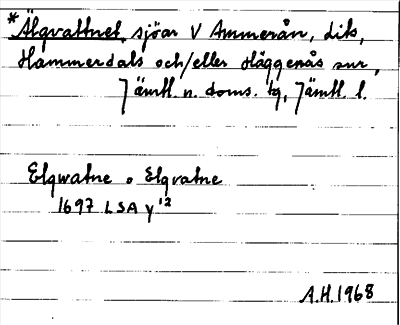 *Älgvattnet, sjöar V Ammerån, Lits,
Hammerdals och/eller Häggenås snr,
Jämtl. n. doms. tg, Jämtl. l.
Elgwatne o Elgvatne
1697 LSA y¹²
A.H. 1968